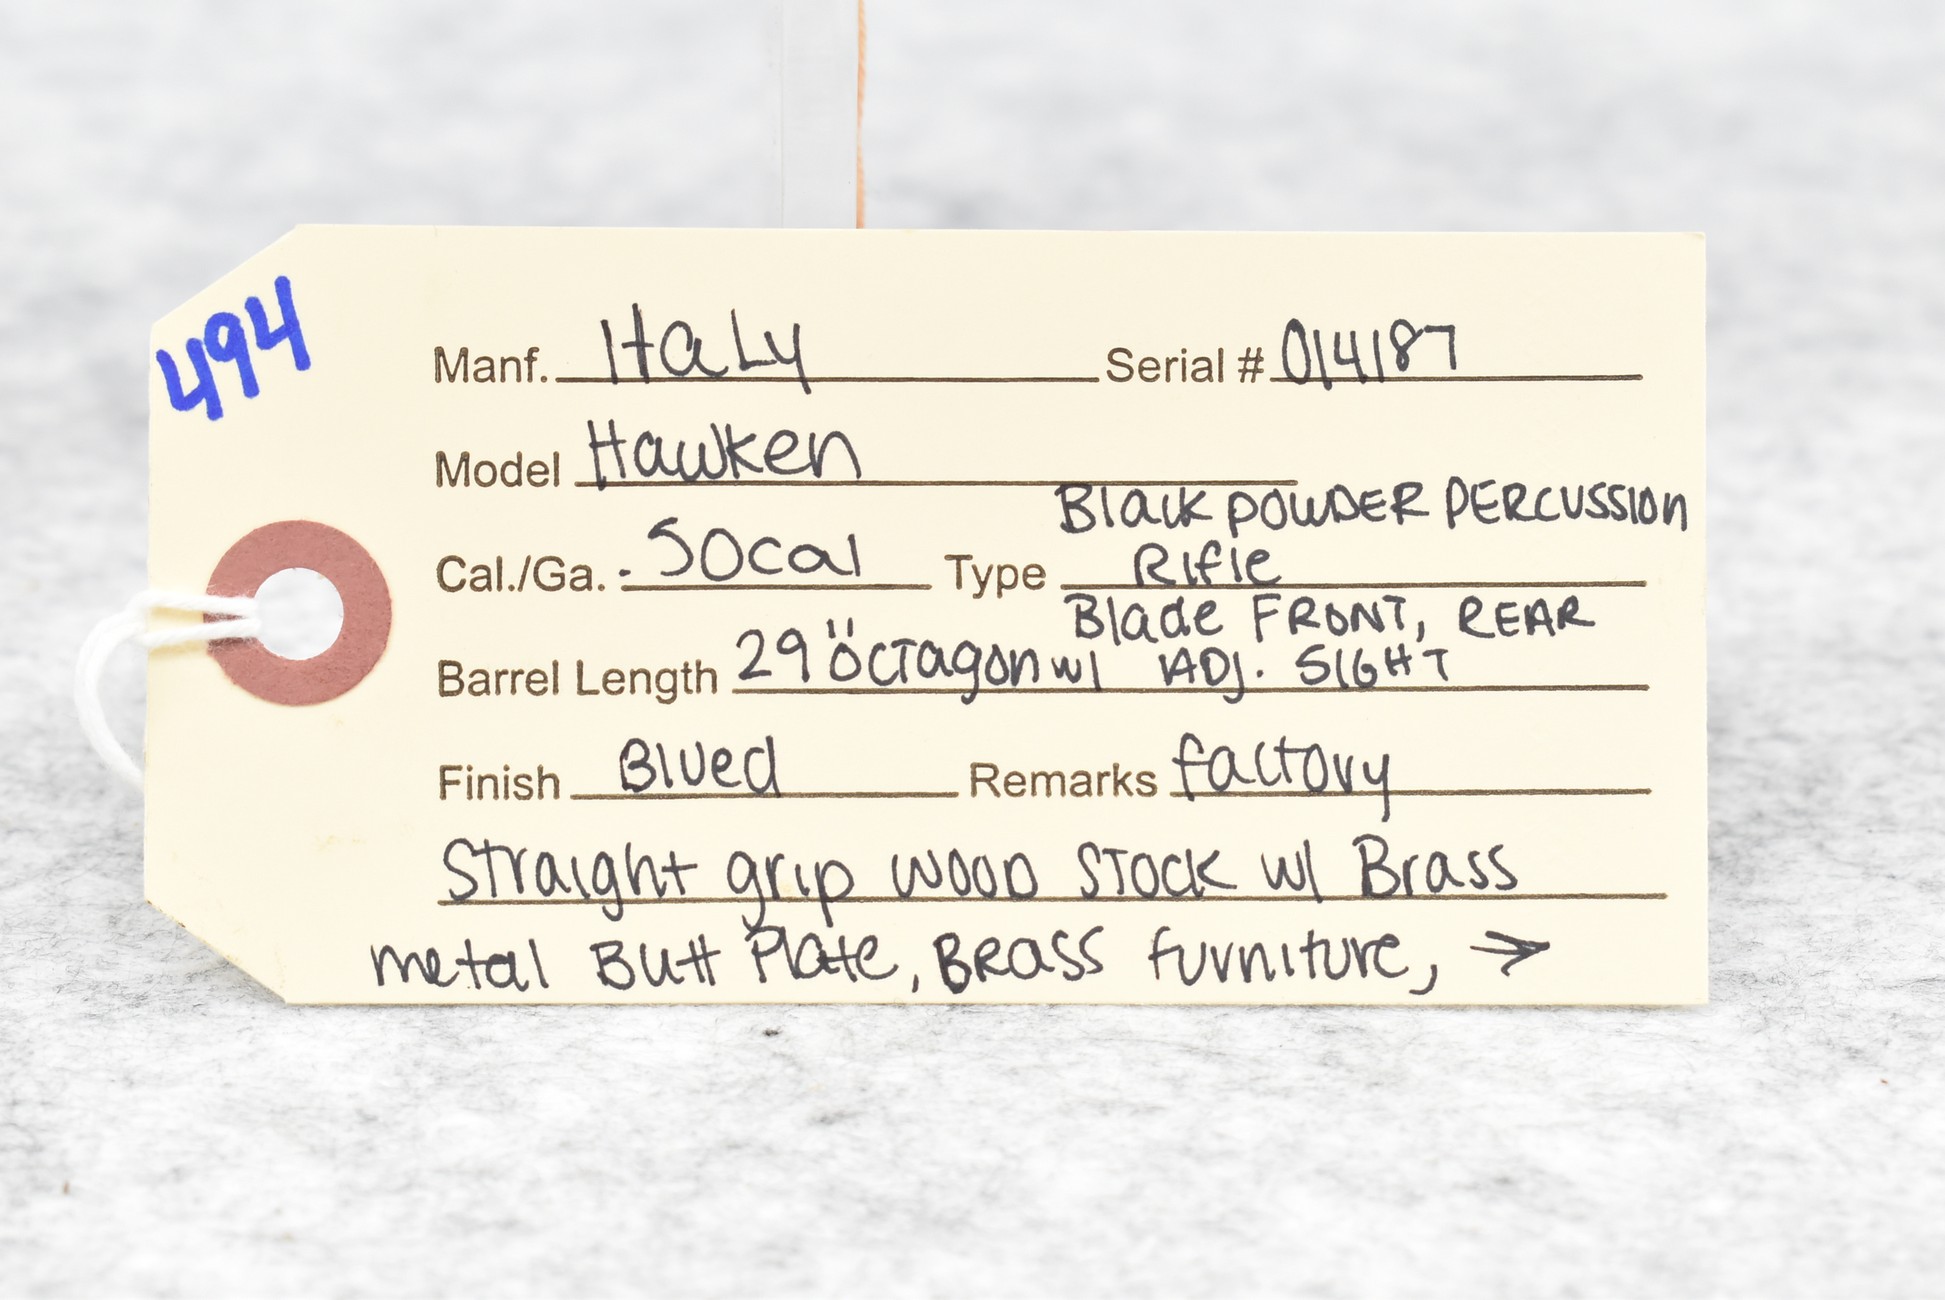 494
Manf. Italy Serial # 014187
Model Hawken
Black powder percussion
Cal./Ga. .50cal Type Rifle
Blade Front, Rear
Barrel Length 29" Octagon w/ Adj. Sight
Finish Blued Remarks factory
Straight grip wood stock w/ Brass
metal Butt Plate, Brass furniture, →